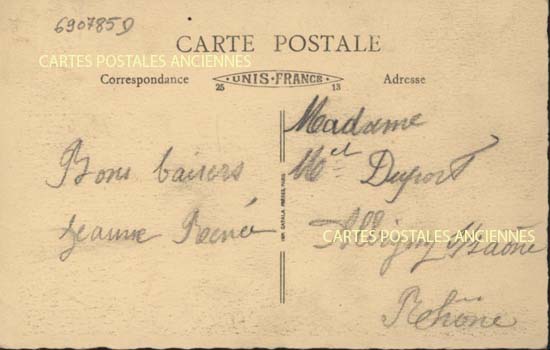 690785D
CARTE POSTALE
CARTES POSTALES ANCIENNES
Correspondance
UNIS-FRANCE
25 13
Adresse
Bons baisers
Jeanne René
IMP. CATALA FRÈRES, PARIS
Madame
M Duport
Albigny Saône
CARTES POSTALES ANCIENNES
Rhône